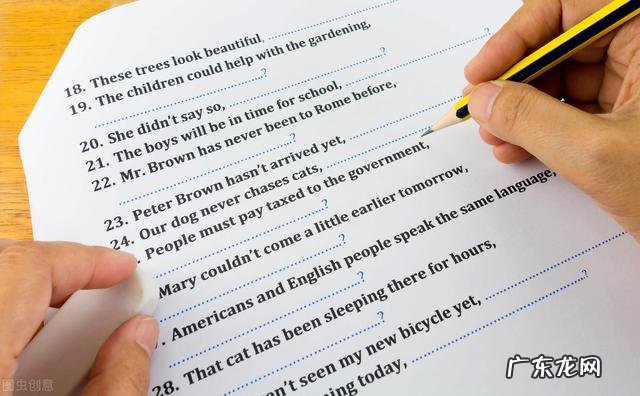 18. These trees look beautiful, ..........?
19. The children could help with the gardening,
..........?
20. She didn't say so, ..........?
21. The boys will be in time for school, ..........?
22. Mr. Brown has never been to Rome before,
..........?
23. Peter Brown hasn't arrived yet, ..........
24. Our dog never chases cats, ..........
People must pay taxed to the government,
..........?
Mary couldn't come a little earlier tomorrow,
..........?
Americans and English people speak the same language,
..........?
28. That cat has been sleeping there for hours,
..........?
n't seen my new bicycle yet, ..........?
ing today, ..........
图虫创意
广东龙网